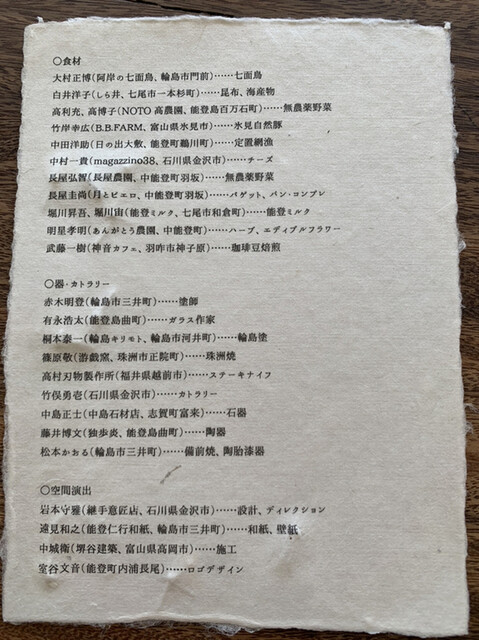 〇食材
大村正博(阿岸の七面鳥、輪島市門前)……七面鳥
白井洋子(しら井、七尾市一本杉町)……昆布、海産物
高利充、高博子(NOTO 高農園、能登島百万石町)……無農薬野菜
竹岸幸広(B.B.FARM、富山県氷見市)……氷見自然豚
中田洋助(日の出大敷、能登町鵜川町)……定置網漁
中村一貴(magazzino38、石川県金沢市)……チーズ
長屋弘智(長屋農園、中能登町羽坂)……無農薬野菜
長屋圭尚(月とピエロ、中能登町羽坂)……バゲット、パン・コンプレ
堀川昇吾、堀川宙(能登ミルク、七尾市和倉町)……能登ミルク
明星孝明(あんがとう農園、中能登町)……ハーブ、エディブルフラワー
武藤一樹(神音カフェ、羽咋市神子原)……珈琲豆焙煎
〇器・カトラリー
赤木明登(輪島市三井町)……塗師
有永浩太(能登島曲町)……ガラス作家
桐本泰一(輪島キリモト、輪島市河井町)……輪島塗
篠原敬(游戯窯、珠洲市正院町)……珠洲焼
高村刃物製作所(福井県越前市)……ステーキナイフ
竹俣勇壱(石川県金沢市)……カトラリー
中島正士(中島石材店、志賀町富来)……石器
藤井博文(独歩炎、能登島曲町)……陶器
松本かおる(輪島市三井町)……備前焼、陶胎漆器
〇空間演出
岩本守雅(継手意匠店、石川県金沢市)……設計、ディレクション
遠見和之(能登仁行和紙、輪島市三井町)……和紙、壁紙
中城衛(堺谷建築、富山県高岡市)……施工
室谷文音(能登町内浦長尾)……ロゴデザイン